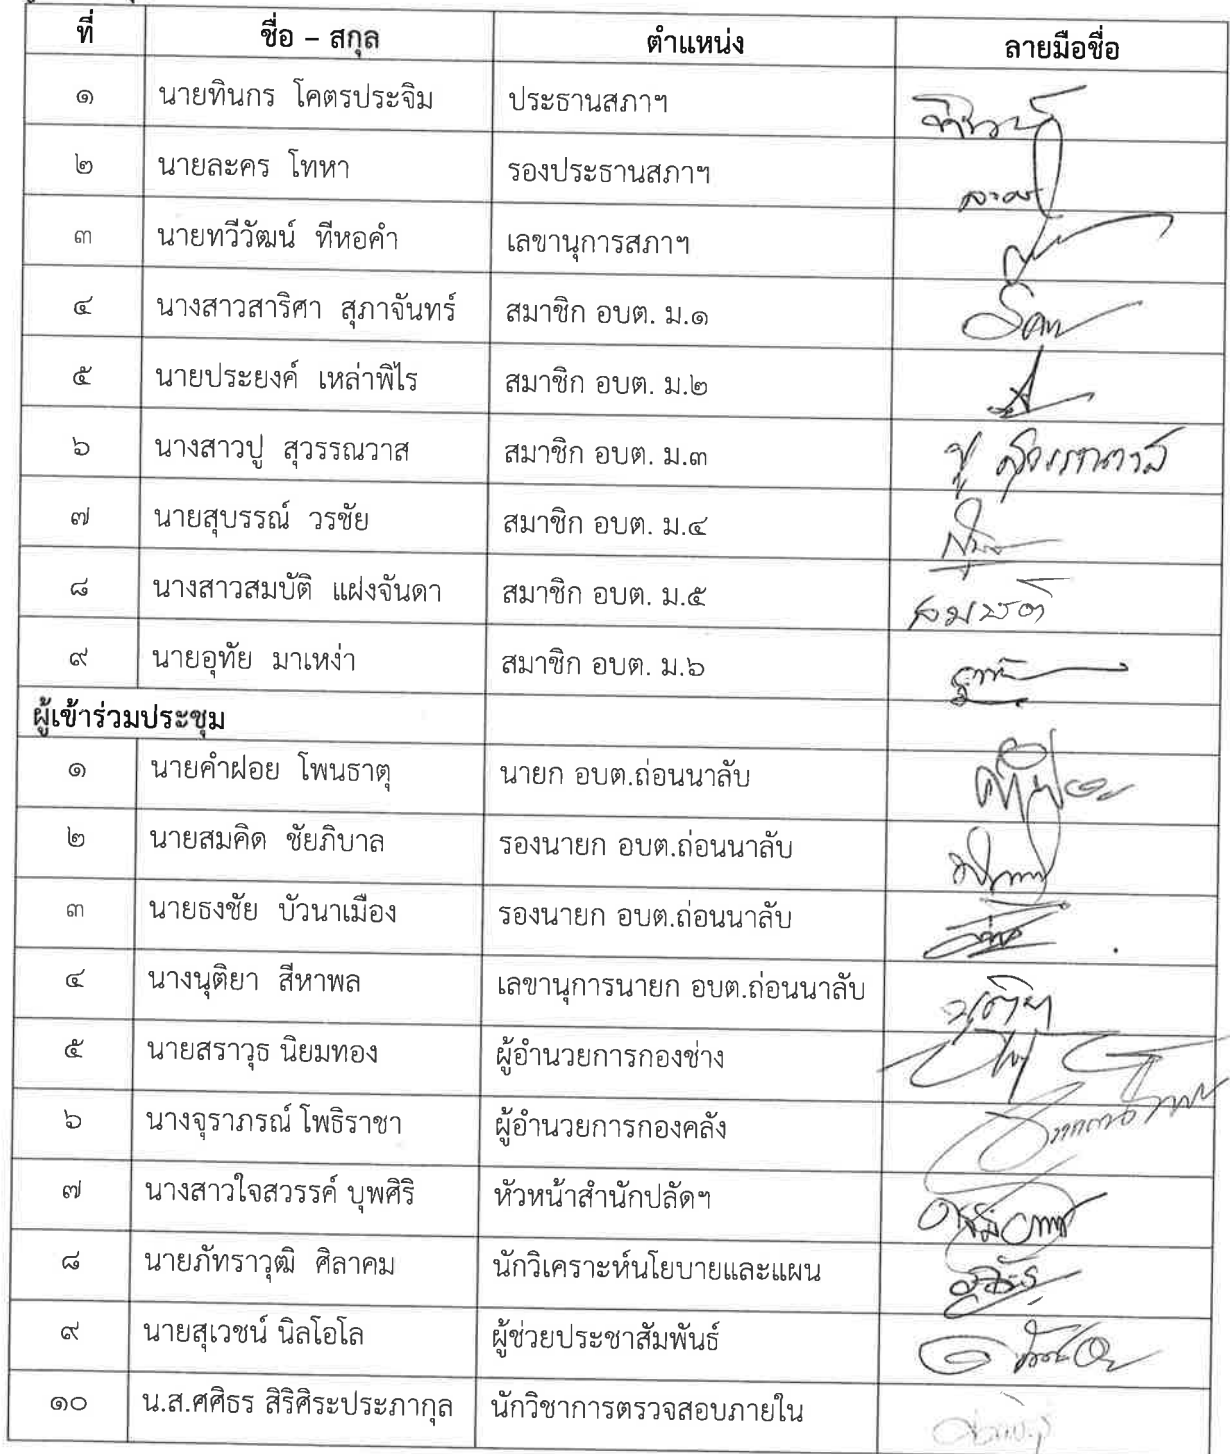 ที่ ชื่อ – สกุล ตำแหน่ง ลายมือชื่อ
๑ นายทินกร โคตรประจิม ประธานสภาฯ
๒ นายละคร โทหา รองประธานสภาฯ
๓ นายทวีวัฒน์ ทีหอคำ เลขานุการสภาฯ
๔ นางสาวสาริศา สุภาจันทร์ สมาชิก อบต. ม.๑
๕ นายประยงค์ เหล่าพิไร สมาชิก อบต. ม.๒
๖ นางสาวปู สุวรรณวาส สมาชิก อบต. ม.๓ ปู สุวรรณวาส
๗ นายสุบรรณ์ วรชัย สมาชิก อบต. ม.๔
๘ นางสาวสมบัติ แฝงจันดา สมาชิก อบต. ม.๕ สมบัติ
๙ นายอุทัย มาเหง่า สมาชิก อบต. ม.๖
ผู้เข้าร่วมประชุม
๑ นายคำฝอย โพนธาตุ นายก อบต.ถ่อนนาลับ
๒ นายสมคิด ชัยภิบาล รองนายก อบต.ถ่อนนาลับ
๓ นายธงชัย บัวนาเมือง รองนายก อบต.ถ่อนนาลับ
๔ นางนุติยา สีหาพล เลขานุการนายก อบต.ถ่อนนาลับ นุติยา
๕ นายสราวุธ นิยมทอง ผู้อำนวยการกองช่าง
๖ นางจุราภรณ์ โพธิราชา ผู้อำนวยการกองคลัง
๗ นางสาวใจสวรรค์ บุพศิริ หัวหน้าสำนักปลัดฯ
๘ นายภัทราวุฒิ ศิลาคม นักวิเคราะห์นโยบายและแผน
๙ นายสุเวชน์ นิลโอโล ผู้ช่วยประชาสัมพันธ์
๑๐ น.ส.ศศิธร สิริศิระประภากุล นักวิชาการตรวจสอบภายใน